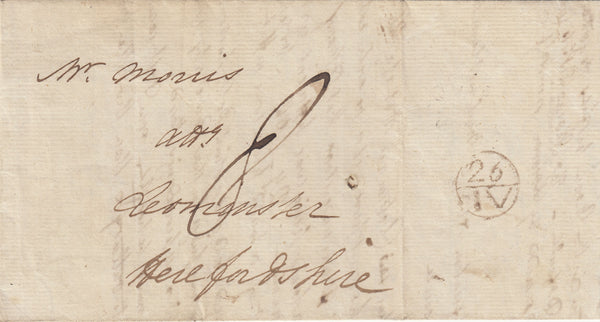 Mr. Morris
atty
8
Leominster
Herefordshire
26
IV